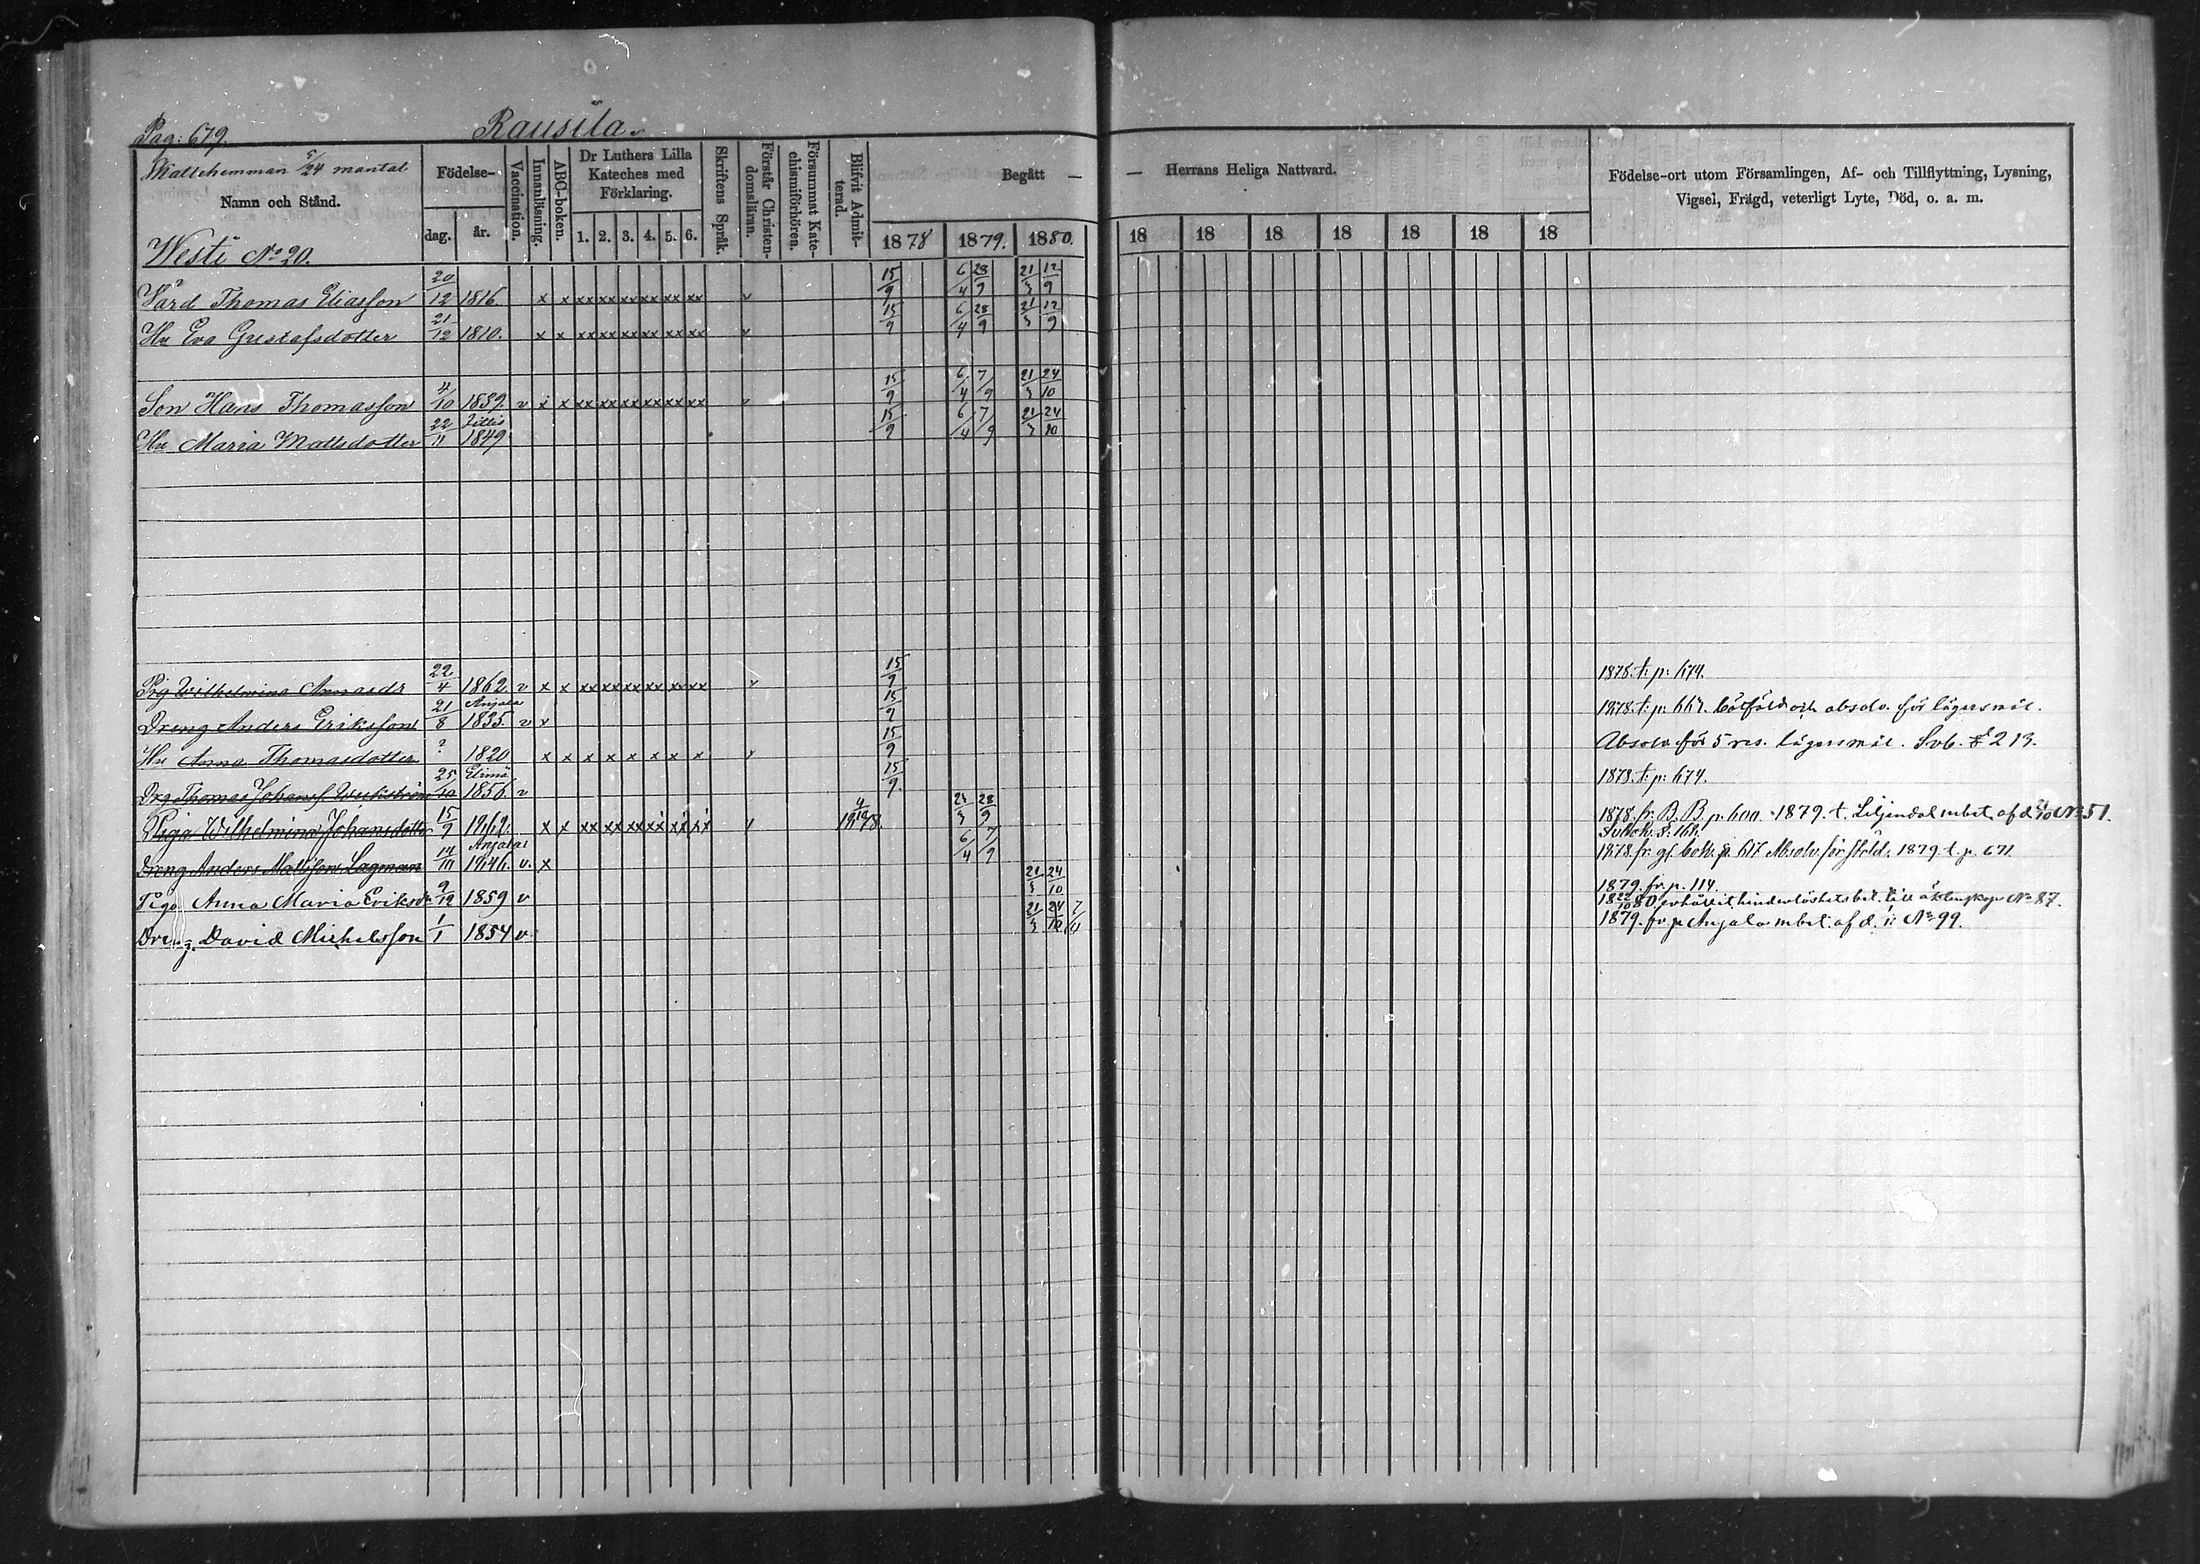 Pag: 679. Rausila.
Skattehemman 5/24 mantal
Namn och Stånd.
Westi No 20.
Födelse-
dag. år.
Vaccination.
Innanläsning.
ABC-boken.
Dr Luthers Lilla
Kateches med
Förklaring.
1. 2. 3. 4. 5. 6.
Skriftens Språk.
Förstår Christen-
domsläran.
Försummat Kate-
chismiförhören.
Blifvit Admit-
terad.
Begått — — Herrans Heliga Nattvard.
1878 1879. 1880. 18 18 18 18 18 18 18
Födelse-ort utom Församlingen, Af- och Tillflyttning, Lysning,
Vigsel, Frägd, veterligt Lyte, Död, o. a. m.
Värd Thomas Eliasson 20/12 1816. x x xx xx xx xx xx xx v 15/9 6/4 28/9 21/3 12/9
Hu Eva Gustafsdotter 21/12 1810. x x xx xx xx xx xx xx v 15/9 6/4 28/9 21/3 12/9
Son Hans Thomasson 4/10 1839. v x x xx xx xx xx xx xx v 15/9 6/4 7/9 21/3 24/10
Hu Maria Mattsdotter 22/11 Jittis 1849 15/9 6/4 7/9 21/3 24/10
Pig Wilhelmina Annasdr 22/4 1862. v x x xx xx xx xx xx xx v 15/9 1878. t. p. 674.
Dreng Anders Eriksson 21/8 Anjala 1835. v x 15/9 1878. t. p. 667. och absolv. för lägersmål.
Hu Anna Thomasdotter ? 1820 x x x x x x x x v 15/9 Absolv. för 5 res. lägersmål. 213.
Drg Thomas Johanss. 25/10 Elimä 1856. v 15/9. 1878. t. p. 674.
Piga Wilhelmina Johansdotter 15/9 1862. x x xx xx xx xx xx xx v 1878 23/3 28/9 1878. fr. B. B. p. 600. 1879. t. Liljendal mbet. af d. No 51.
Anders Mattsson Lagman 14/10 Anjala 1846. v. x 6/4 7/9 1878. fr. p. 617 Absolv. för stöld. 1879. t. p. 671.
Piga Anna Maria Eriksdr 9/12 1859 v 21/3 24/10 1879. fr. p. 114.
hinderlöshetsbet. till äktenskap No 87.
Dreng David Michelsson 1/1 1854 v. 21/3 24/10 7/11 1879. fr. Anjala mbet. af d. No 99.